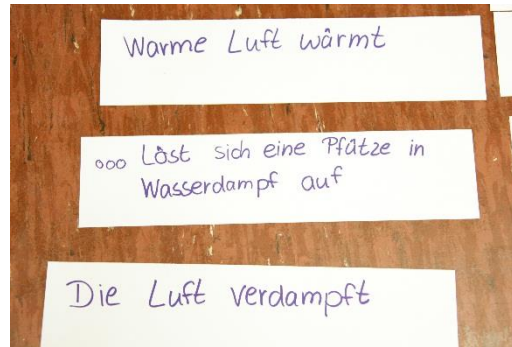 Warme Luft wärmt
ooo Löst sich eine Pfütze in
Wasserdampf auf
Die Luft verdampft